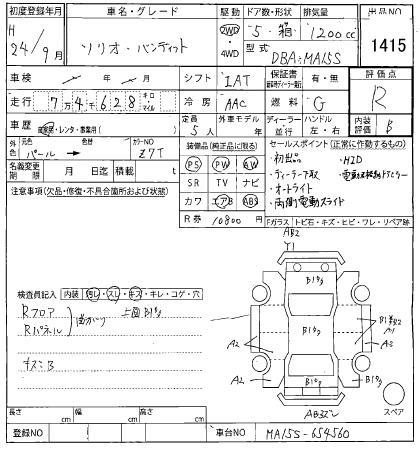 初度登録年月 車名・グレード 駆動 ドア数・形状 排気量 出品NO
H 24/9月 ソリオ・バンディット 2WD・4WD 5 箱 1200cc 1415
型式 DBA-MA15S
車検 年 月 シフト IAT 保証書 有・無 評価点
走行 7万4千628 キロ・マイル 冷房 AAC 燃料 G R
車歴 自家用・レンタ・事業用( ) 定員 5人 外車モデル 年 ディーラー・並行 ハンドル 左・右 内装評価 B
外色 元色 パール 色替 カラーNO Z7T
名義変更期限 月 日迄 積載 t
装備品(純正品に限る) セールスポイント(正常に作動するもの)
PS PW AW
SR TV ナビ
カワ エアB ABS
R券 10800円
・初出品 ・HID
・ディーラー下取
・オートライト
・両側電動スライド
注意事項(欠品・修復・不具合箇所および状態)
Fガラス トビ石・キズ・ヒビ・ワレ・リペア跡
検査員記入 内装 汚レ・スレ・キズ・キレ・コゲ・穴
Rフロア
Rパネル
キズミB
AB2
Y1
B1
A2
A3
A2
B1
スペア
長さ cm 幅 cm 高さ cm
登録NO 車台NO MA15S-654560